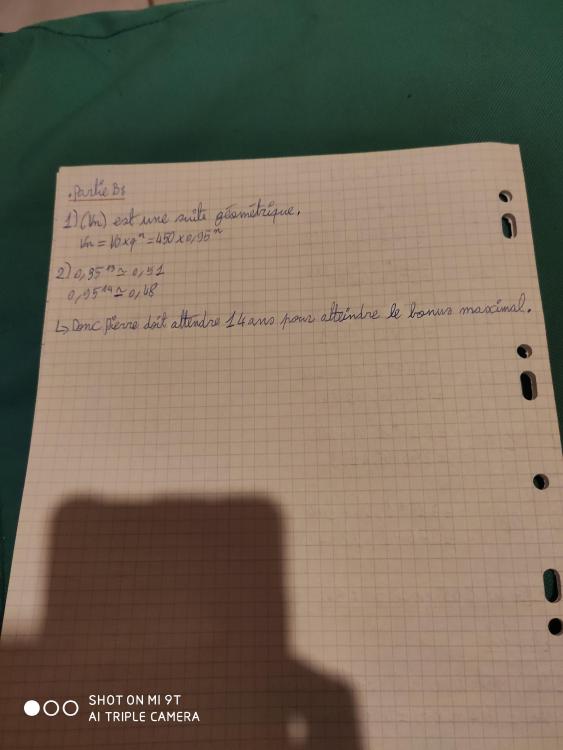 . Partie B:
1) (Vn) est une suite géométrique.
Vn = V0 x qⁿ = 450 x 0,95ⁿ
2) 0,95¹³ ≃ 0,51
0,95¹⁴ ≃ 0,48
↳ Donc Pierre doit attendre 14 ans pour atteindre le bonus maximal.
SHOT ON MI 9T
AI TRIPLE CAMERA